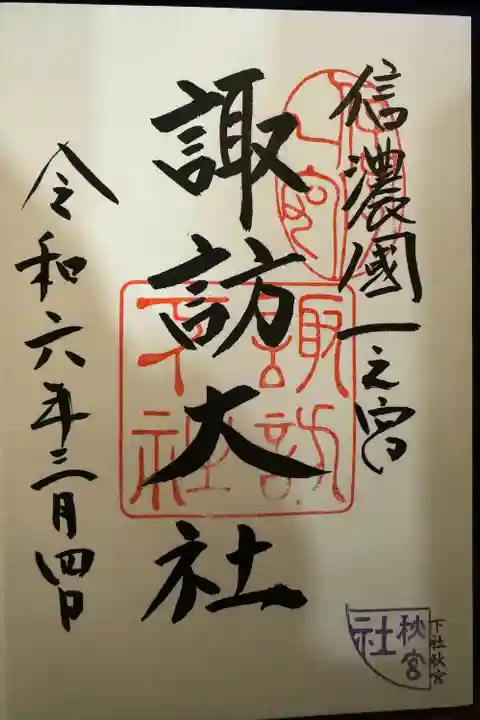 信濃國一之宮
諏訪大社
令和六年三月四日
諏訪
下社
秋宮
社
下社秋宮